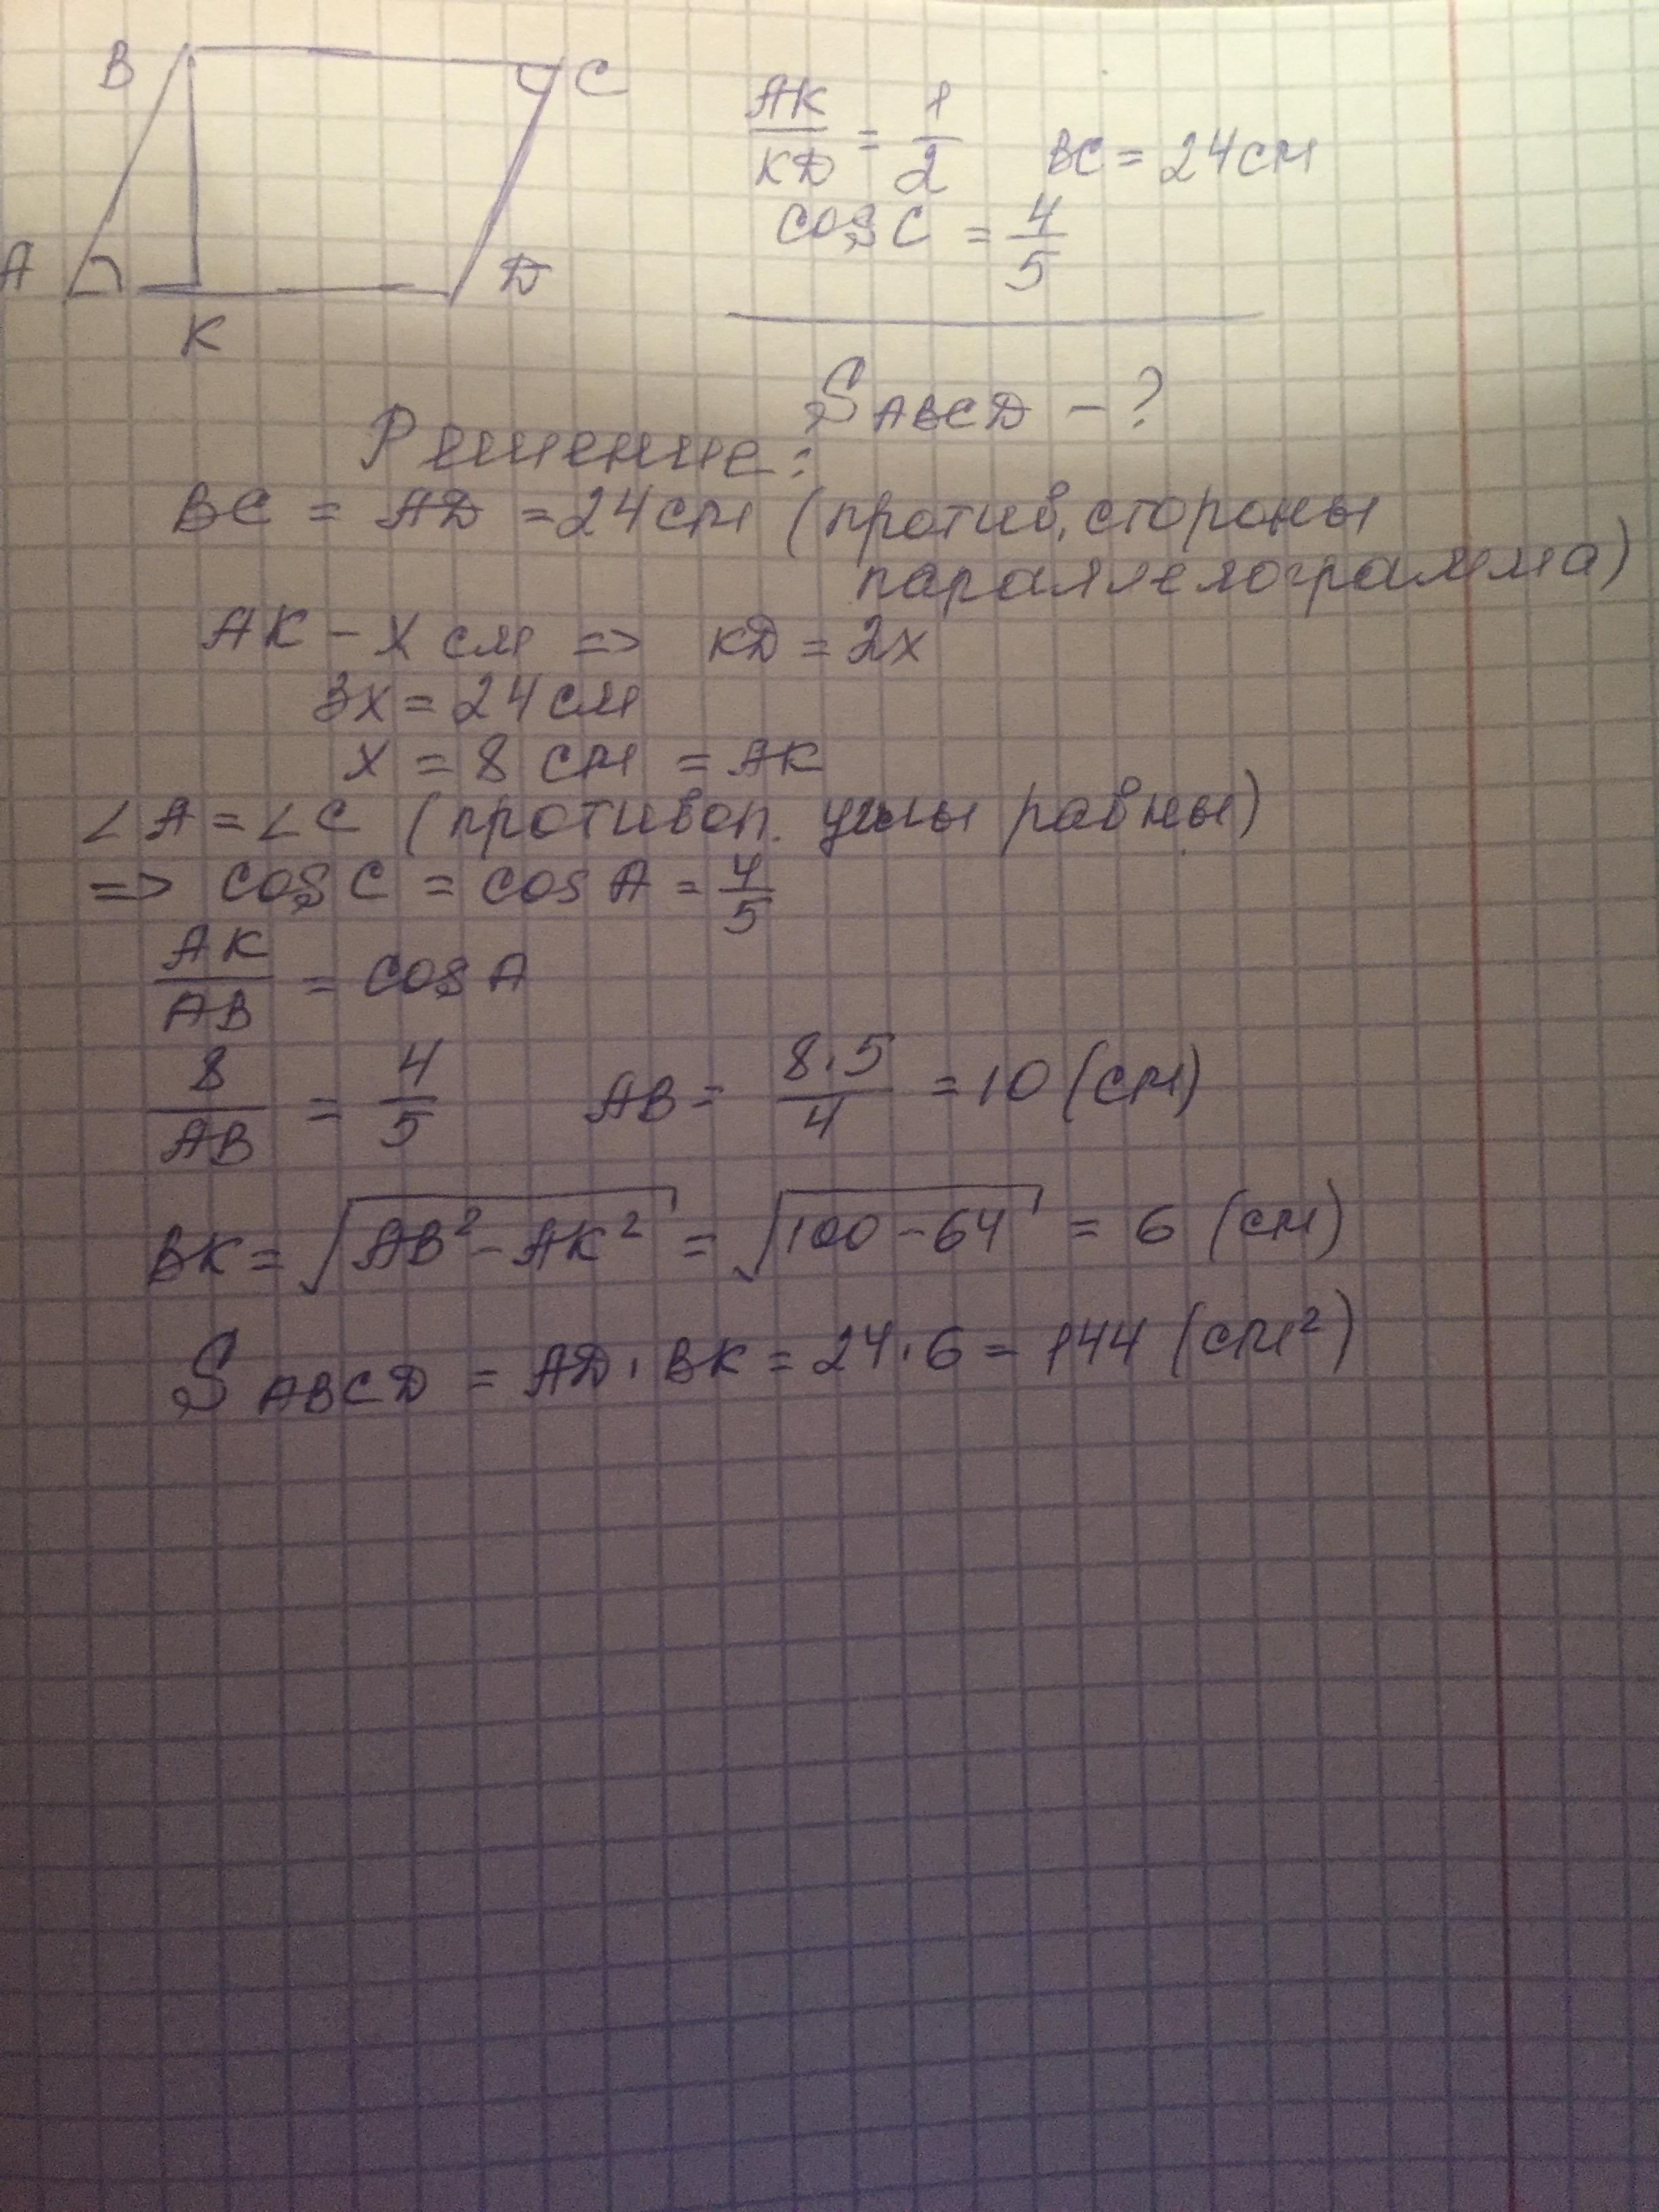 B
C
A
K
D
AK/KD = 1/2 BC = 24 см
cos C = 4/5
S ABCD - ?
Решение:
BC = AD = 24 см (против. стороны
параллелограмма)
AK - x см => KD = 2x
3x = 24 см
x = 8 см = AK
∠A = ∠C (противоп. углы равны)
=> cos C = cos A = 4/5
AK/AB = cos A
8/AB = 4/5 AB = 8·5/4 = 10 (см)
BK = √(AB² - AK²) = √(100 - 64) = 6 (см)
S ABCD = AD · BK = 24 · 6 = 144 (см²)